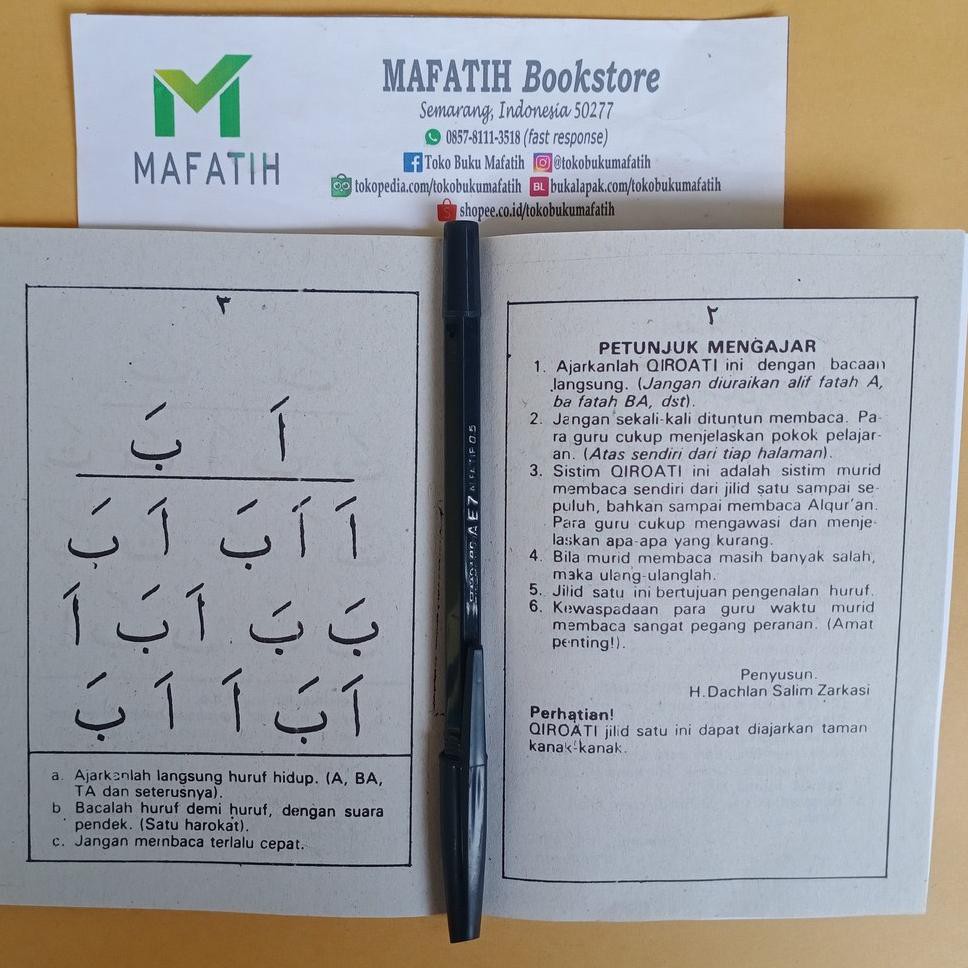 MAFATIH
MAFATIH Bookstore
Semarang, Indonesia 50277
0857-8111-3518 (fast response)
Toko Buku Mafatih @tokobukumafatih
tokopedia.com/tokobukumafatih BL bukalapak.com/tokobukumafatih
shopee.co.id/tokobukumafatih
٢
PETUNJUK MENGAJAR
1. Ajarkanlah QIROATI ini dengan bacaan
langsung. (Jangan diuraikan alif fatah A,
ba fatah BA, dst).
2. Jangan sekali-kali dituntun membaca. Pa-
ra guru cukup menjelaskan pokok pelajar-
an. (Atas sendiri dari tiap halaman).
3. Sistim QIROATI ini adalah sistim murid
membaca sendiri dari jilid satu sampai se-
puluh, bahkan sampai membaca Alqur'an.
Para guru cukup mengawasi dan menje-
laskan apa-apa yang kurang.
4. Bila murid membaca masih banyak salah,
maka ulang-ulanglah.
5. Jilid satu ini bertujuan pengenalan huruf.
6. Kewaspadaan para guru waktu murid
membaca sangat pegang peranan. (Amat
penting!).
Penyusun.
H.Dachlan Salim Zarkasi
Perhatian!
QIROATI jilid satu ini dapat diajarkan taman
kanak-kanak.
٣
اَ بَ
اَ اَ بَ اَ بَ
بَ بَ اَ بَ اَ
اَ بَ اَ اَ بَ
a. Ajarkanlah langsung huruf hidup. (A, BA,
TA dan seterusnya).
b. Bacalah huruf demi huruf, dengan suara
pendek. (Satu harokat).
c. Jangan membaca terlalu cepat.
AE7 0.5